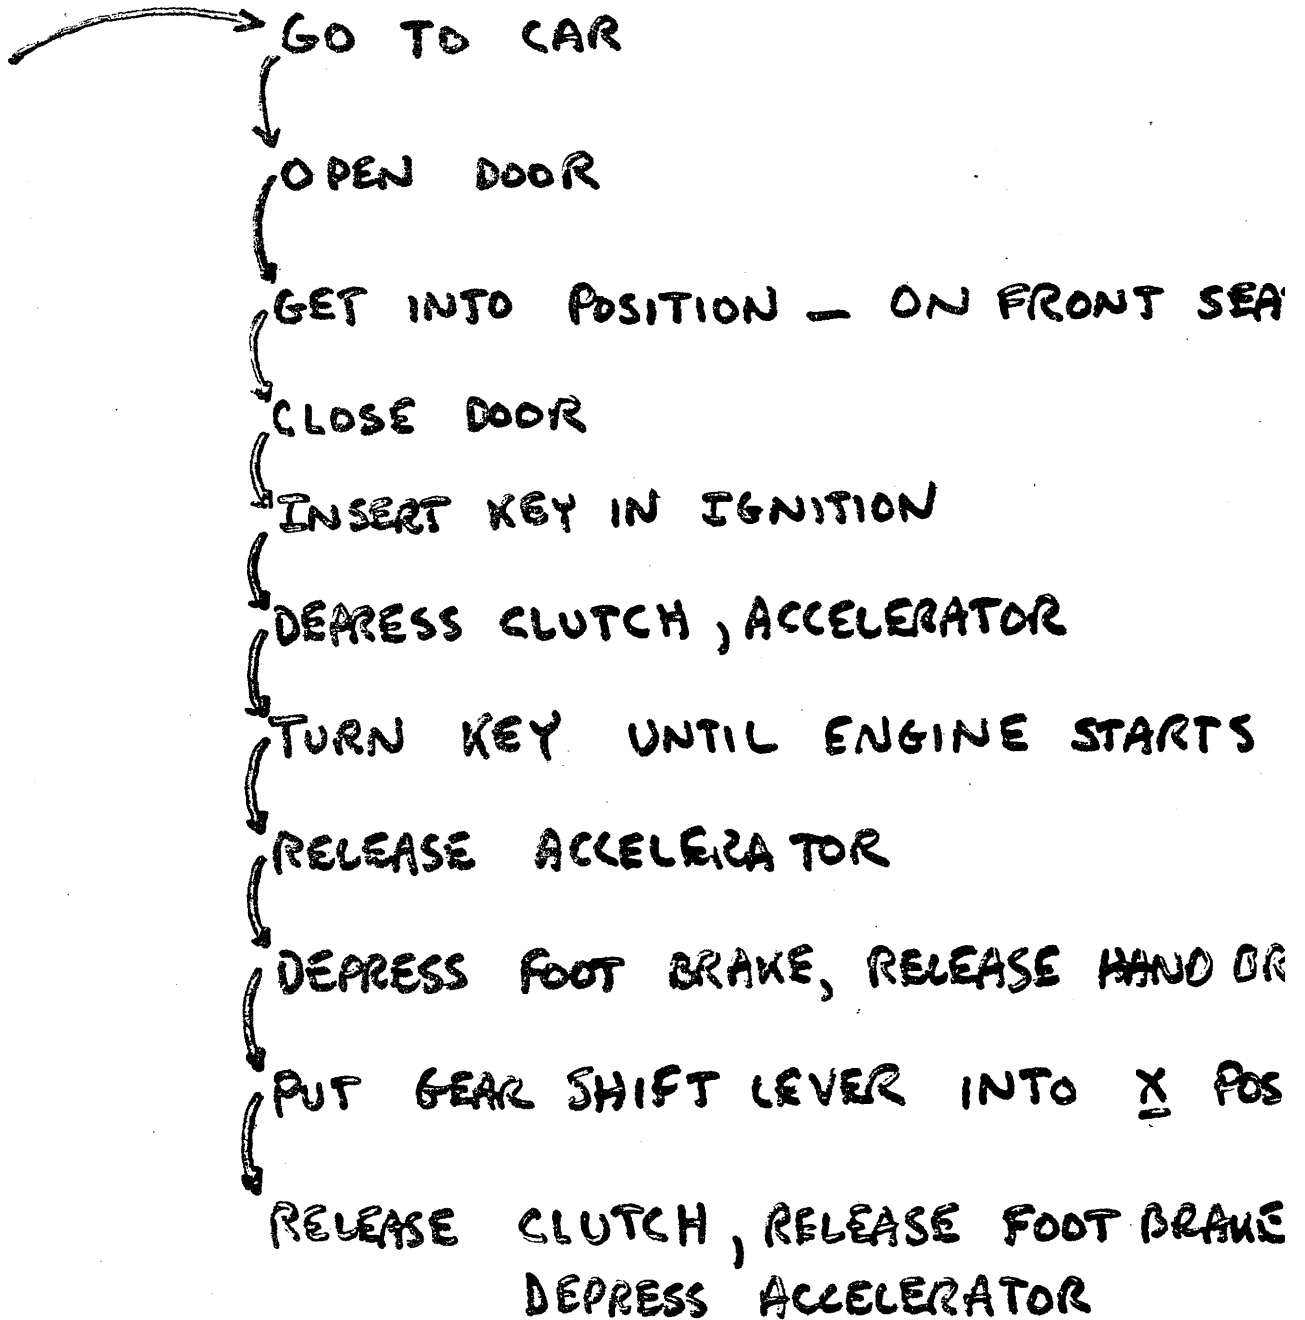 GO TO CAR
OPEN DOOR
GET INTO POSITION — ON FRONT SEA
CLOSE DOOR
INSERT KEY IN IGNITION
DEPRESS CLUTCH, ACCELERATOR
TURN KEY UNTIL ENGINE STARTS
RELEASE ACCELERATOR
DEPRESS FOOT BRAKE, RELEASE HAND BR
PUT GEAR SHIFT LEVER INTO X POS
RELEASE CLUTCH, RELEASE FOOT BRAKE
DEPRESS ACCELERATOR